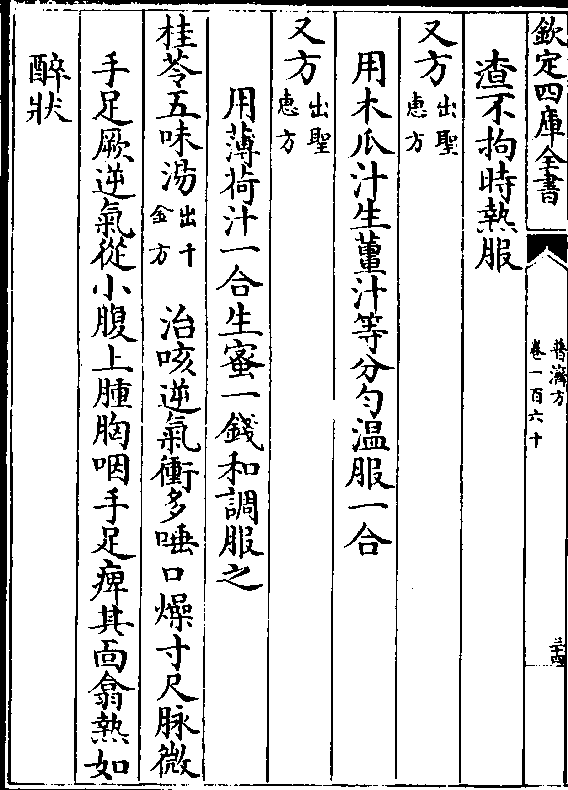 欽定四庫全書
普濟方
卷一百六十
三十四
渣不拘時熱服
又方出聖惠方
用木瓜汁生薑汁等分勻温服一合
又方出聖惠方
用薄荷汁一合生蜜一錢和調服之
桂苓五味湯出千金方 治咳逆氣衝多唾口燥寸尺脉微
手足厥逆氣從小腹上腫胸咽手足痺其面翕熱如
醉狀